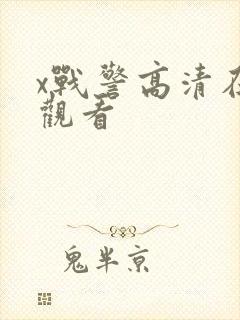 x戰警高清在
觀看
鬼半京